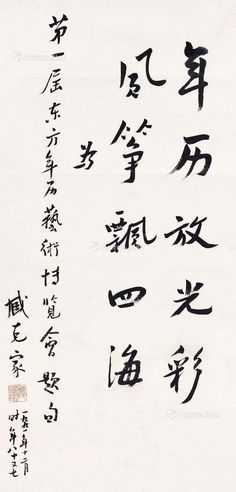 年历放光彩
风筝飘四海
为
第一届东方年历艺術博览會题句
臧克家
一九九一年十二月
时年八十又七